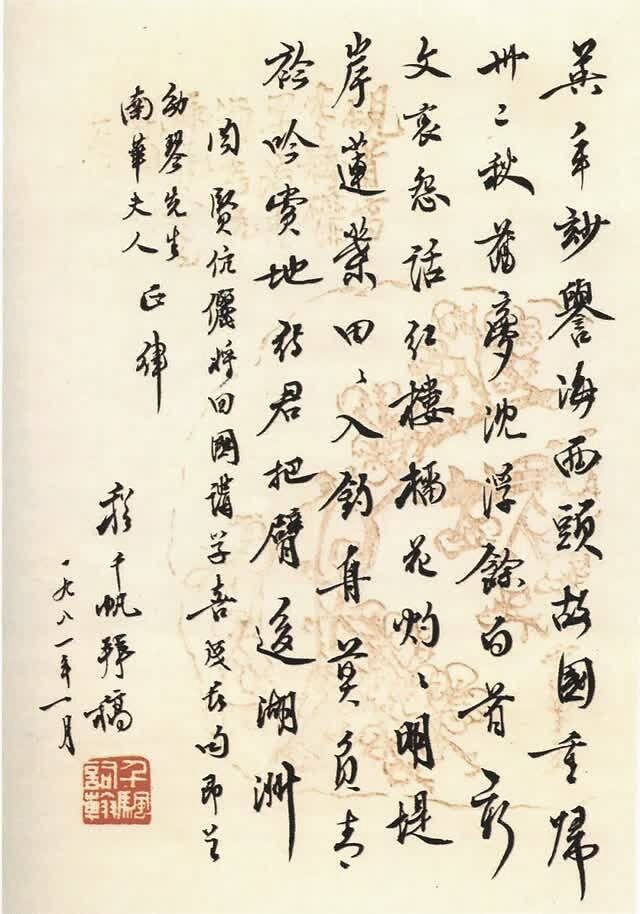 英年妙譽海西頭故國重歸
卅二秋舊夢沈浮餘白首新
文哀怨話紅樓花灼〻明堤
岸蓮葉田〻入釣舟莫負青
衿吟賞地君把臂後湖洲
聞賢伉儷將回國講學喜成長句即呈
幼琴先生
南華夫人
正律
程千帆拜稿
一九八一年一月
千颿詞翰